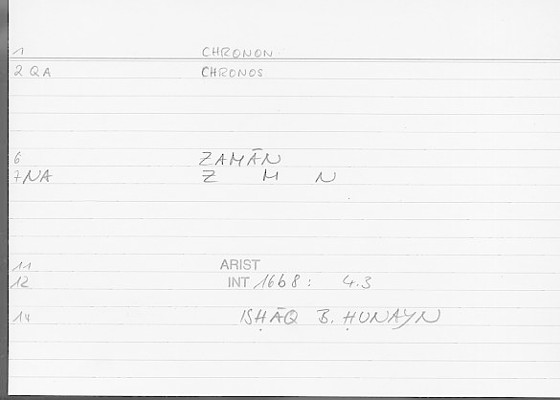 1 CHRONON
2 QA CHRONOS
6 ZAMĀN
7NA Z M N
11 ARIST
12 INT 16b8: 4.3
14 ISḤĀQ B. ḤUNAYN